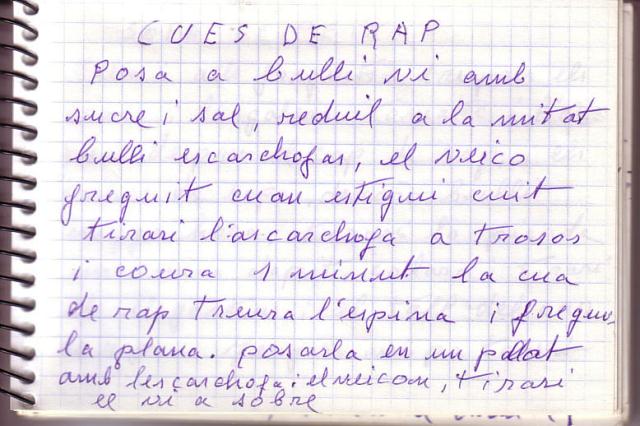 CUES DE RAP
Posa a bulli vi amb
sucre i sal, reduil a la mitat
bulli escarchofas, el veico
freguit cuan estigui cuit
tirari l'ascarchofa a trosos
i coura 1 minut. la cua
de rap treura l'espina i fregu-
la plana. posarla en un pllat
amb lescarchofa i el veicon, tirari
el vi a sobre